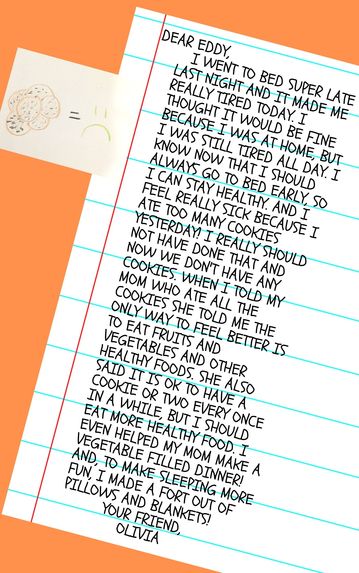 DEAR EDDY,
I WENT TO BED SUPER LATE
LAST NIGHT AND IT MADE ME
REALLY TIRED TODAY. I
THOUGHT IT WOULD BE FINE
BECAUSE I WAS AT HOME, BUT
I WAS STILL TIRED ALL DAY. I
KNOW NOW THAT I SHOULD
ALWAYS GO TO BED EARLY, SO
I CAN STAY HEALTHY. AND I
FEEL REALLY SICK BECAUSE I
ATE TOO MANY COOKIES
YESTERDAY! I REALLY SHOULD
NOT HAVE DONE THAT AND
NOW WE DON'T HAVE ANY
COOKIES. WHEN I TOLD MY
MOM WHO ATE ALL THE
COOKIES SHE TOLD ME THE
ONLY WAY TO FEEL BETTER IS
TO EAT FRUITS AND
VEGETABLES AND OTHER
HEALTHY FOODS. SHE ALSO
SAID IT IS OK TO HAVE A
COOKIE OR TWO EVERY ONCE
IN A WHILE, BUT I SHOULD
EAT MORE HEALTHY FOOD. I
EVEN HELPED MY MOM MAKE A
VEGETABLE FILLED DINNER!
AND, TO MAKE SLEEPING MORE
FUN, I MADE A FORT OUT OF
PILLOWS AND BLANKETS!
YOUR FRIEND,
OLIVIA